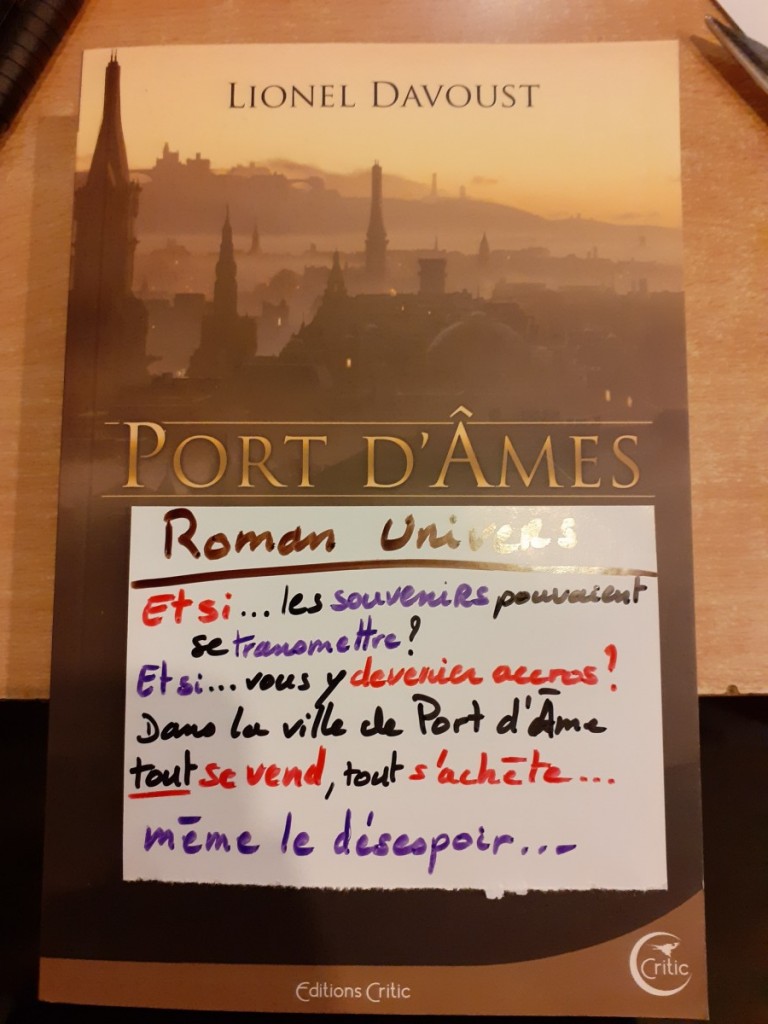 LIONEL DAVOUST
PORT D'ÂMES
Roman Univers
Et si... les souvenirs pouvaient
se transmettre?
Et si... vous y devenier accros?
Dans la ville de Port d'Âme
tout se vend, tout s'achète...
même le désespoir...
Editions Critic
Critic